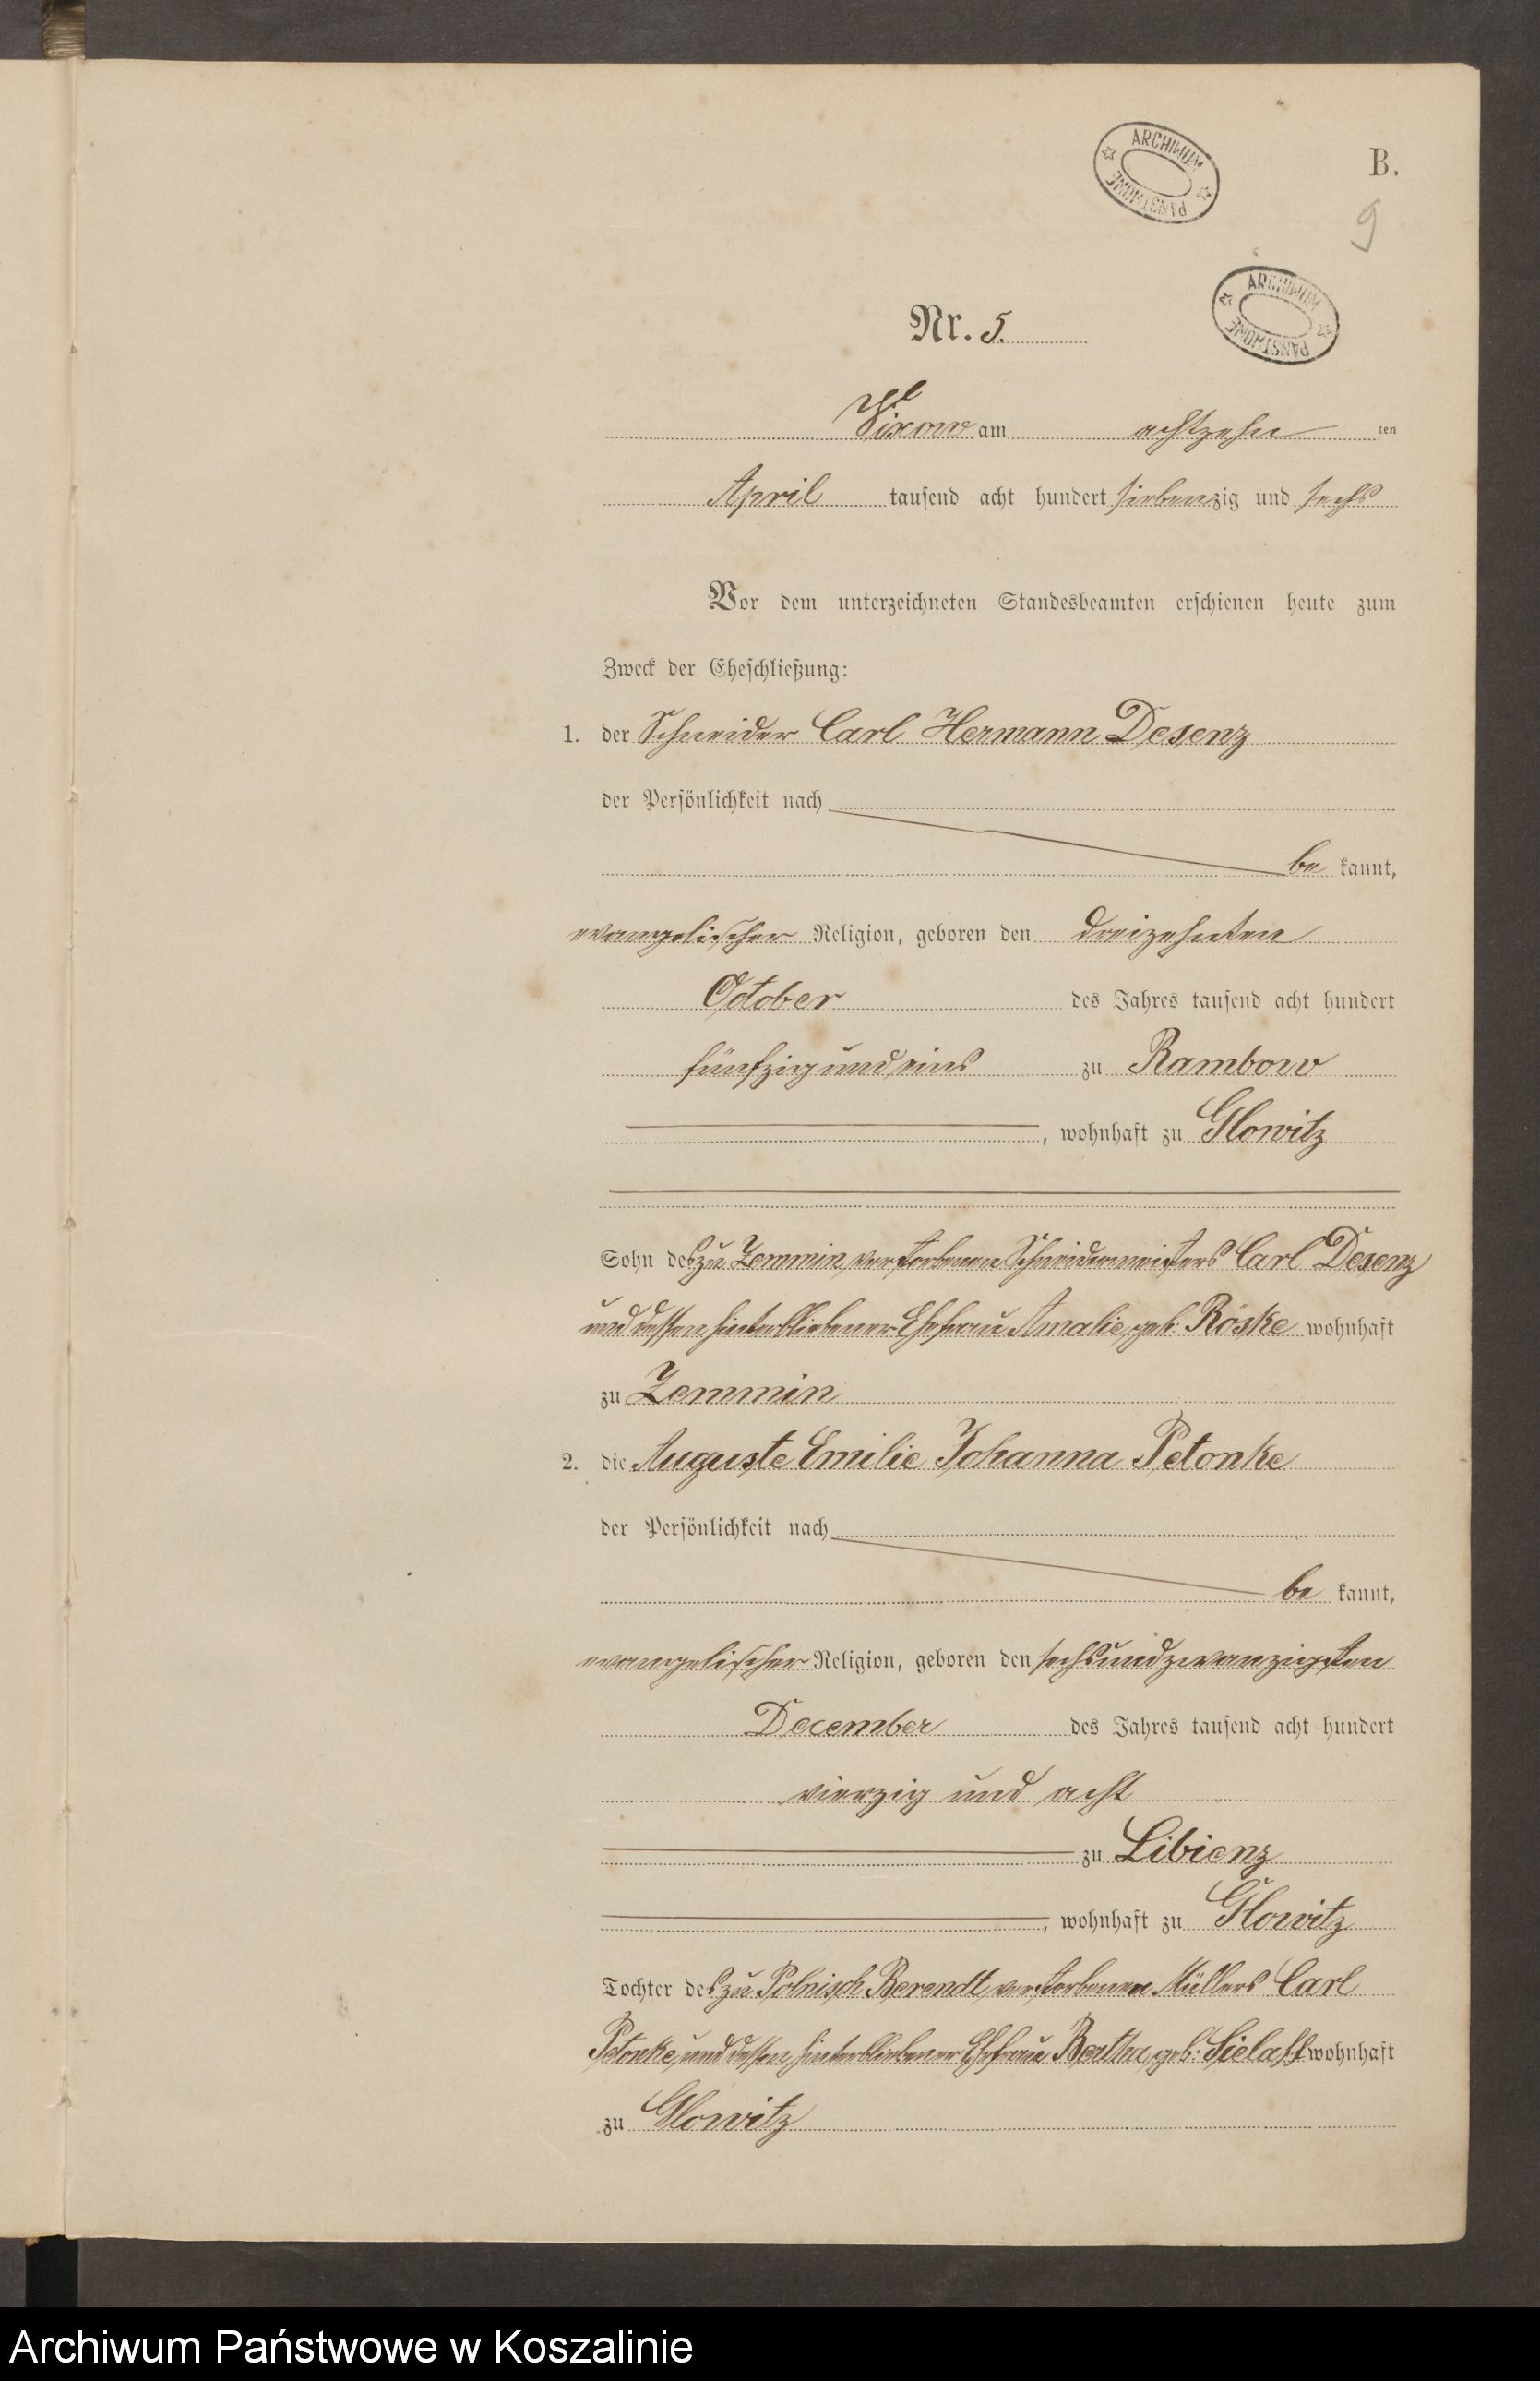 ARCHIWUM PAŃSTWOWE
B.
9
ARCHIWUM PAŃSTWOWE
Nr. 5.
Vixow am achtzehn ten
April tausend acht hundert siebenzig und sechs
Vor dem unterzeichneten Standesbeamten erschienen heute zum
Zweck der Eheschließung:
1. der Schneider Carl Hermann Desenz
der Persönlichkeit nach
be kannt,
evangelischer Religion, geboren den dreizehnten
October des Jahres tausend acht hundert
fünfzig und eins zu Rambow
, wohnhaft zu Glowitz
Sohn des zu Zemmin verstorbenen Schneidermeisters Carl Desenz
und dessen hinterbliebener Ehefrau Amalie geb. Röske wohnhaft
zu Zemmin
2. die Auguste Emilie Johanna Petonke
der Persönlichkeit nach
be kannt,
evangelischer Religion, geboren den sechsundzwanzigsten
December des Jahres tausend acht hundert
vierzig und acht
zu Libienz
, wohnhaft zu Glowitz
Tochter des zu Polnisch Berendt verstorbenen Müllers Carl
Petonke und dessen hinterbliebener Ehefrau Bertha geb: Sielaff wohnhaft
zu Glowitz
Archiwum Państwowe w Koszalinie